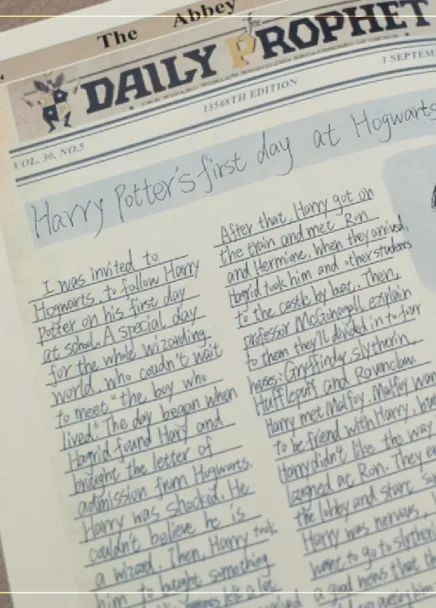 The Abbey
The
DAILY PROPHET
VOL. 30, NO.5
13548TH EDITION
1 SEPTEM
Harry Potter's first day at Hogwarts
I was invited to
Hogwarts, to follow Harry
Potter on his first day
at school. A special day
for the whole wizarding
world, who couldn't wait
to meet "the boy who
lived." The day began when
Hagrid found Harry and
brought the letter of
admission from Hogwarts.
Harry was shocked. He
couldn't believe he is
a wizard. Then, Harry took
him to bought something
After that, Harry got on
the train and met Ron
and Hermione, when they arrived,
Hagrid took him and other students
to the castle by boat. Then,
professor McGonagall explain
to them they'll divided in to four
houses: Gryffindor, slytherin,
Hufflepuff and Ravenclaw.
Harry met Malfoy. Malfoy wan
to be friend with Harry, bu
Harry didn't like the way
laughed at Ron. They en
the lobby and start so
Harry was nervous.
want to go to slytheri
a good news that th